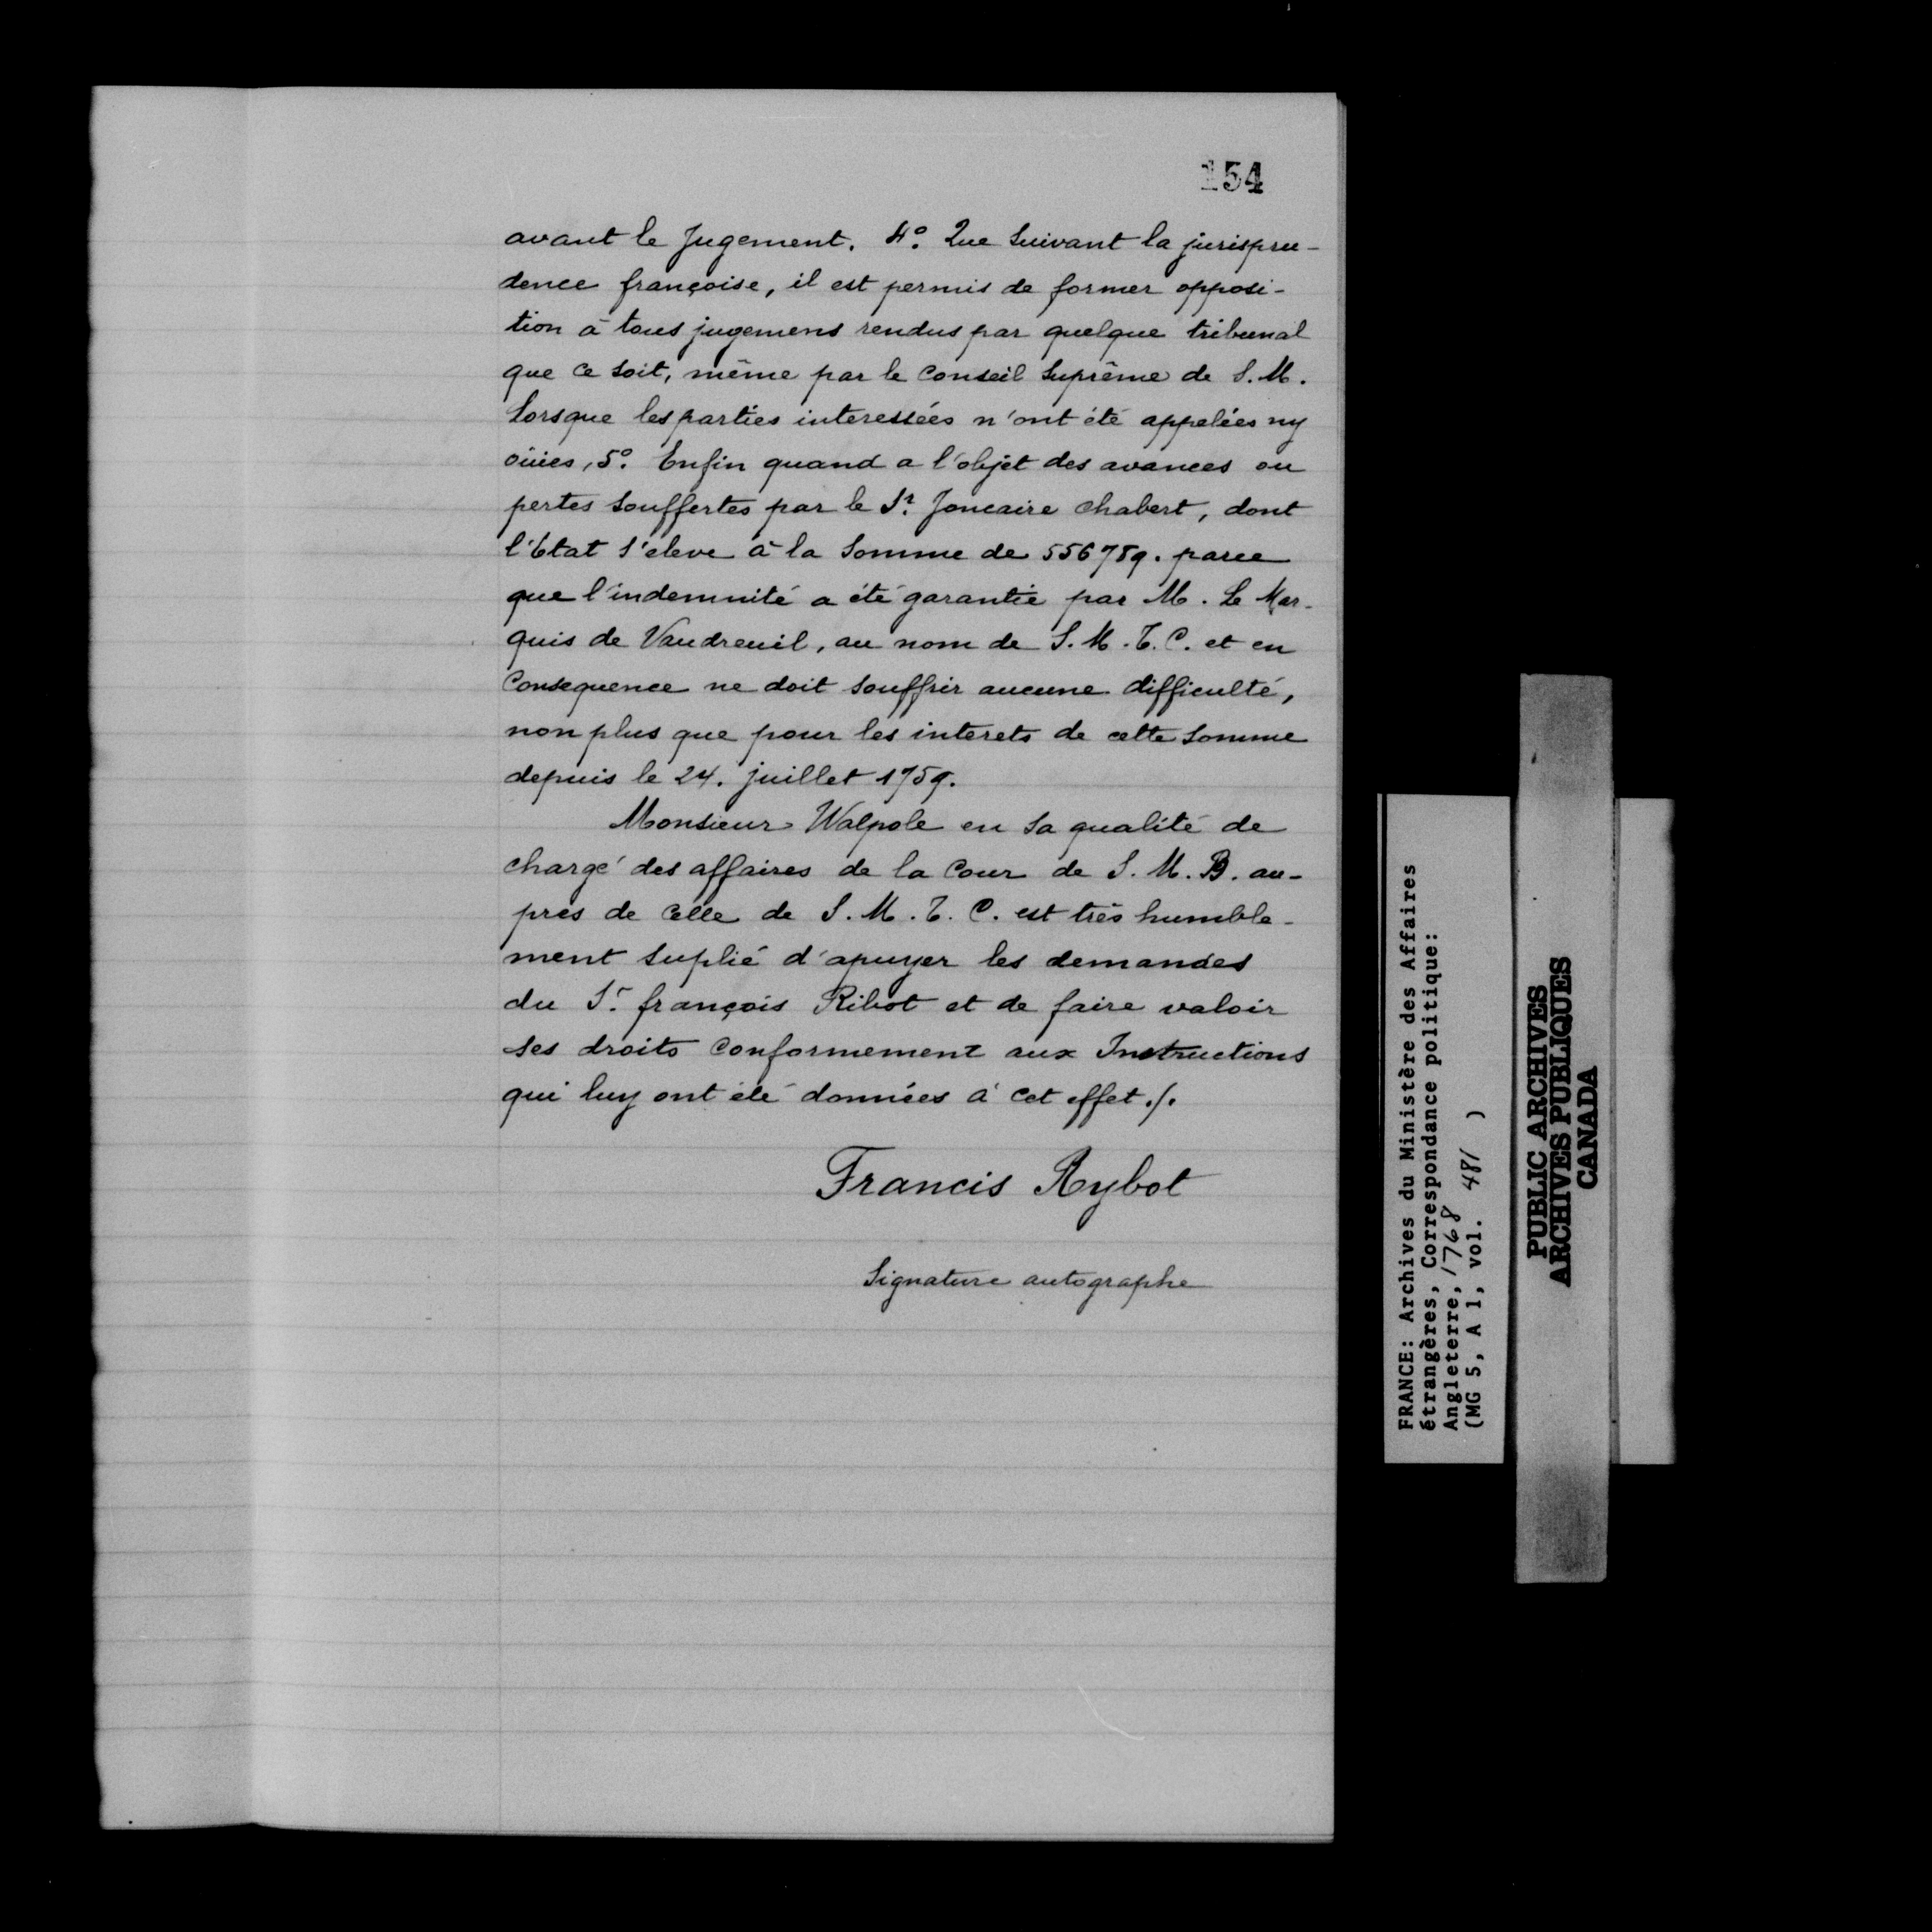 154
avant le Jugement. 4° Que Suivant la jurispru-
dence françoise, il est permis de former opposi-
tion à tous jugemens rendus par quelque tribunal
que ce soit, même par le Conseil Suprême de S. M.
Lorsque les parties interessées n'ont été appelées ny
oüies, 5° Enfin quand a l'objet des avances ou
pertes souffertes par le Sr. Joncaire Chabert, dont
l'Etat s'eleve à la Somme de 556789. parce
que l'indemnité a été garantie par M. Le Mar-
quis de Vaudreuil, au nom de S. M. T. C. et en
Consequence ne doit souffrir aucune difficulté,
non plus que pour les interets de cette Somme
depuis le 24. juillet 1759.
Monsieur Walpole en Sa qualité de
chargé des affaires de la Cour de S. M. B. au-
près de Celle de S. M. T. C. est très humble-
ment Suplié d'apuyer les demandes
du Sr. françois Ribot et de faire valoir
ses droits Conformement aux Instructions
qui luy ont été données à cet effet ./.
Francis Rybot
Signature autographe
FRANCE: Archives du Ministère des Affaires
étrangères, Correspondance politique:
Angleterre, 1768
(MG 5, A 1, vol. 481 )
PUBLIC ARCHIVES
ARCHIVES PUBLIQUES
CANADA